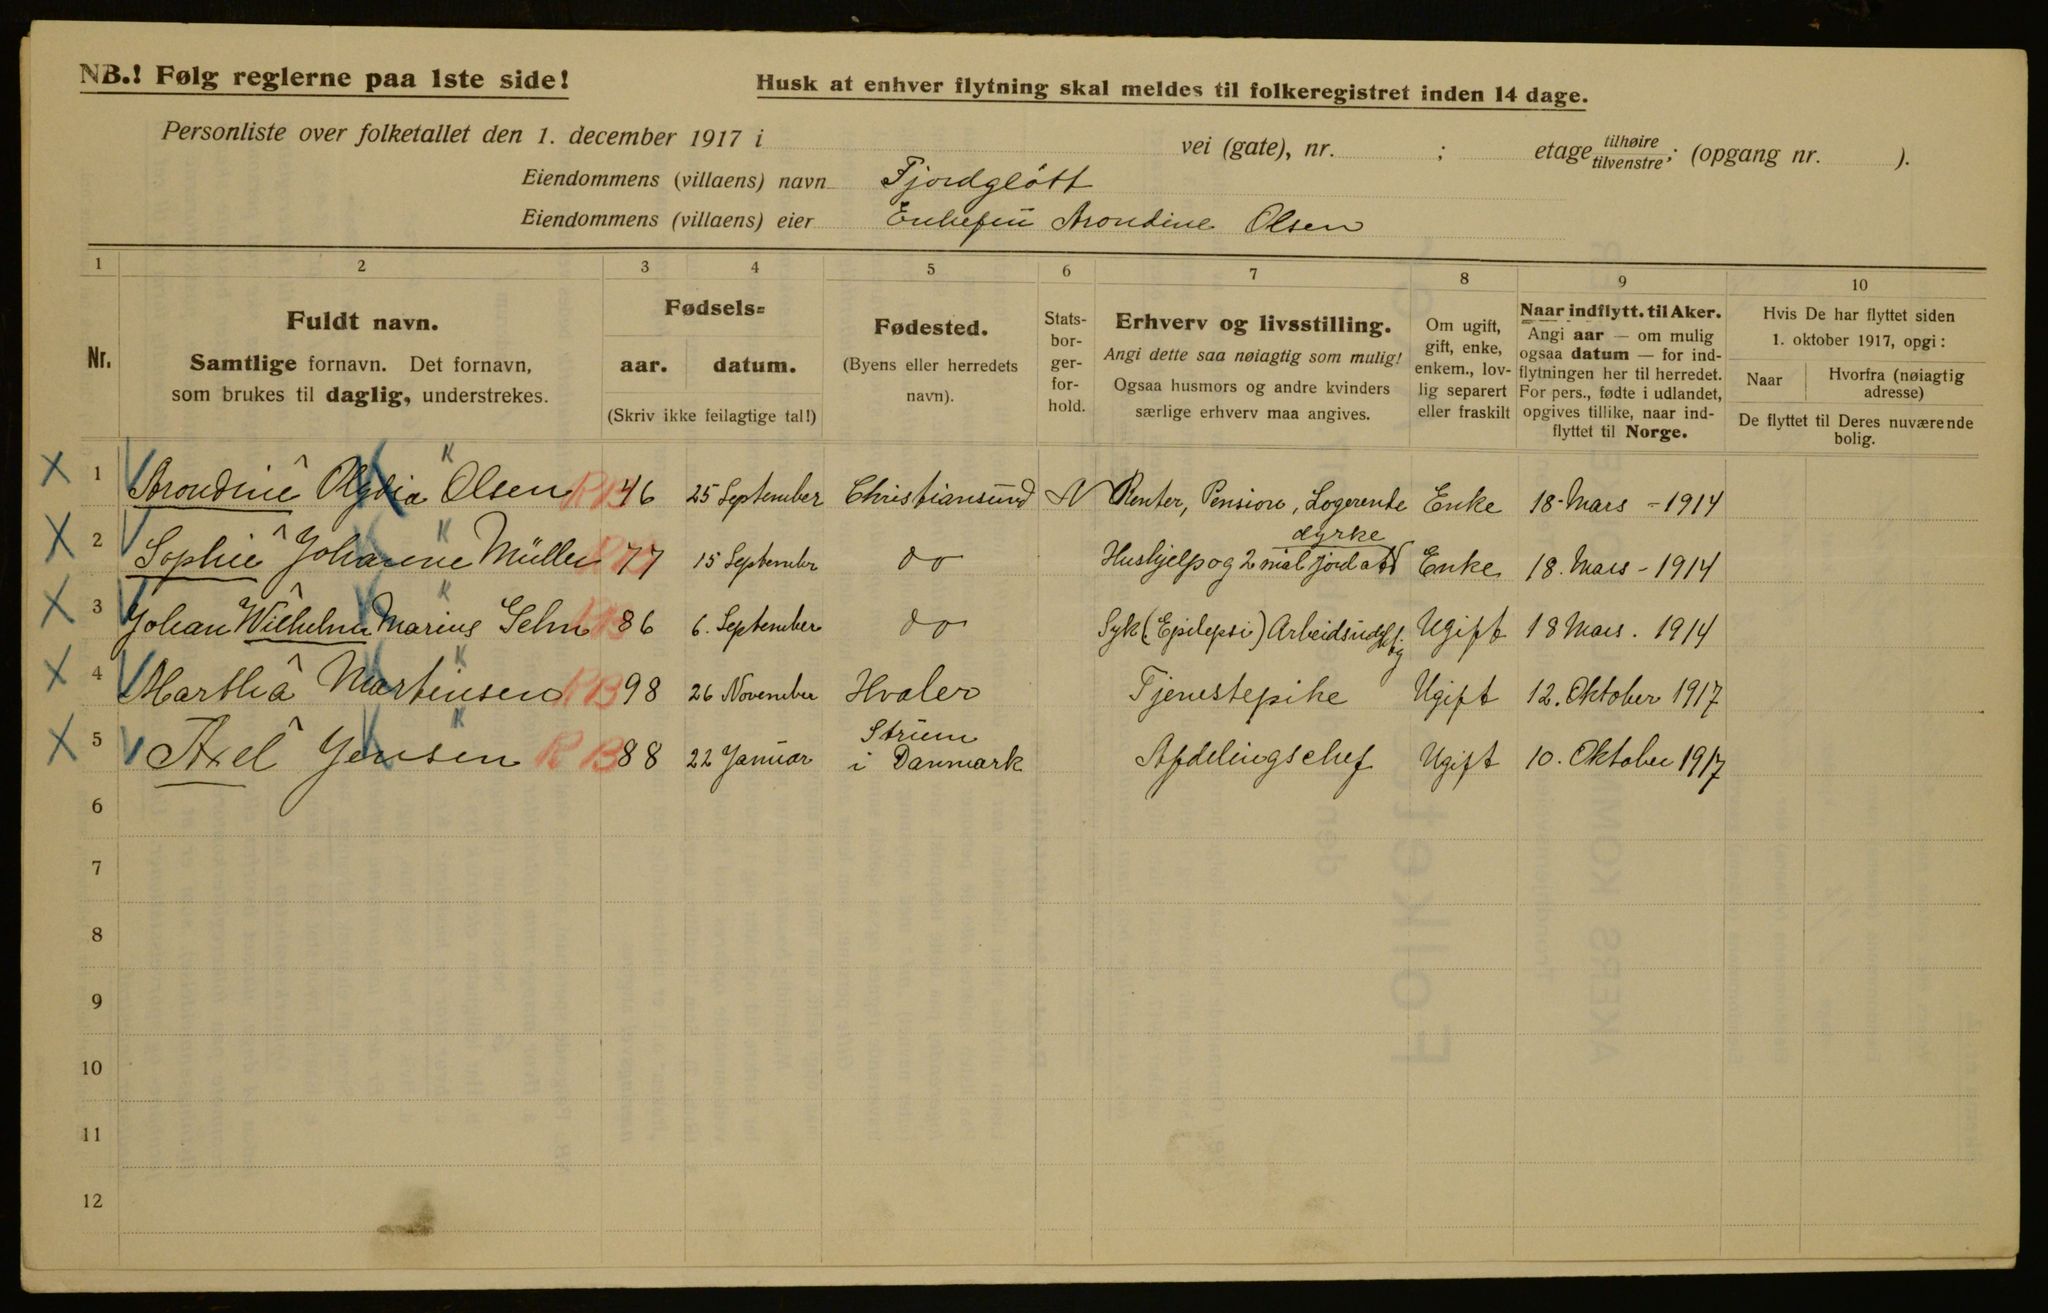 NB.! Følg reglerne paa 1ste side!
Husk at enhver flytning skal meldes til folkeregistret inden 14 dage.
Personliste over folketallet den 1. december 1917 i vei (gate), nr. ; etage tilhøire tilvenstre; (opgang nr. ).
Eiendommens (villaens) navn Fjordgløtt
Eiendommens (villaens) eier Enkefru Arondine Olsen
1 2 3 4 5 6 7 8 9 10
Nr.
Fuldt navn.
Samtlige fornavn. Det fornavn,
som brukes til daglig, understrekes.
Fødsels=
aar. datum.
(Skriv ikke feilagtige tal!)
Fødested.
(Byens eller herredets
navn).
Stats-
bor-
ger-
for-
hold.
Erhverv og livsstilling.
Angi dette saa nøiagtig som mulig!
Ogsaa husmors og andre kvinders
særlige erhverv maa angives.
Om ugift,
gift, enke,
enkem., lov-
lig separert
eller fraskilt
Naar indflytt. til Aker.
Angi aar — om mulig
ogsaa datum — for ind-
flytningen her til herredet.
For pers., fødte i udlandet,
opgives tillike, naar ind-
flyttet til Norge.
Hvis De har flyttet siden
1. oktober 1917, opgi:
Naar Hvorfra (nøiagtig
adresse)
De flyttet til Deres nuværende
bolig.
X 1 Arondine Olsen RB 46 25 September Christiansund N Renter, Pension, Logerende Enke 18 Mars - 1914
dyrke
X 2 Sophie Johanne Müller RB 77 15 September do Hushjelp og 2 mål jord Enke 18. Mars - 1914
X 3 Johan Wilhelm Marius RB 86 6. September do Syk (Epilepsi) Ugift 18 Mars. 1914
X 4 Martha Martinsen RB 98 26 November Hvaler Tjenestepike Ugift 12. Oktober 1917
X 5 Axel Jensen RB 88 22 Januar
i Danmark Afdelingschef Ugift 10. Oktober 1917
6
7
8
9
10
11
12